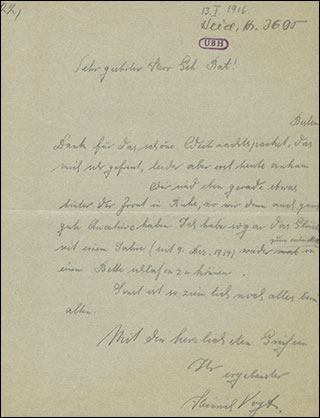 22)
13.I 1916.
Heid. Hs. 3695
UBH
Sehr geehrter Herr Geh. Rat!
Besten
Dank für das schöne Weihnachtspacket, das
mich sehr gefreut, leider aber erst heute ankam
Wir sind eben gerade etwas
hinter der Front in Ruhe, wo wir denn auch ganz
gute Quartiere haben. Ich habe sogar das Glück
zum ersten Mal
seit einem Jahre (seit 9. Dez. 1914) wieder in
einem Bette schlafen zu können.
Sonst ist so ziemlich noch alles beim
alten.
Mit den herzlichsten Grüßen
Ihr
ergebenster
Heinrich Vogt